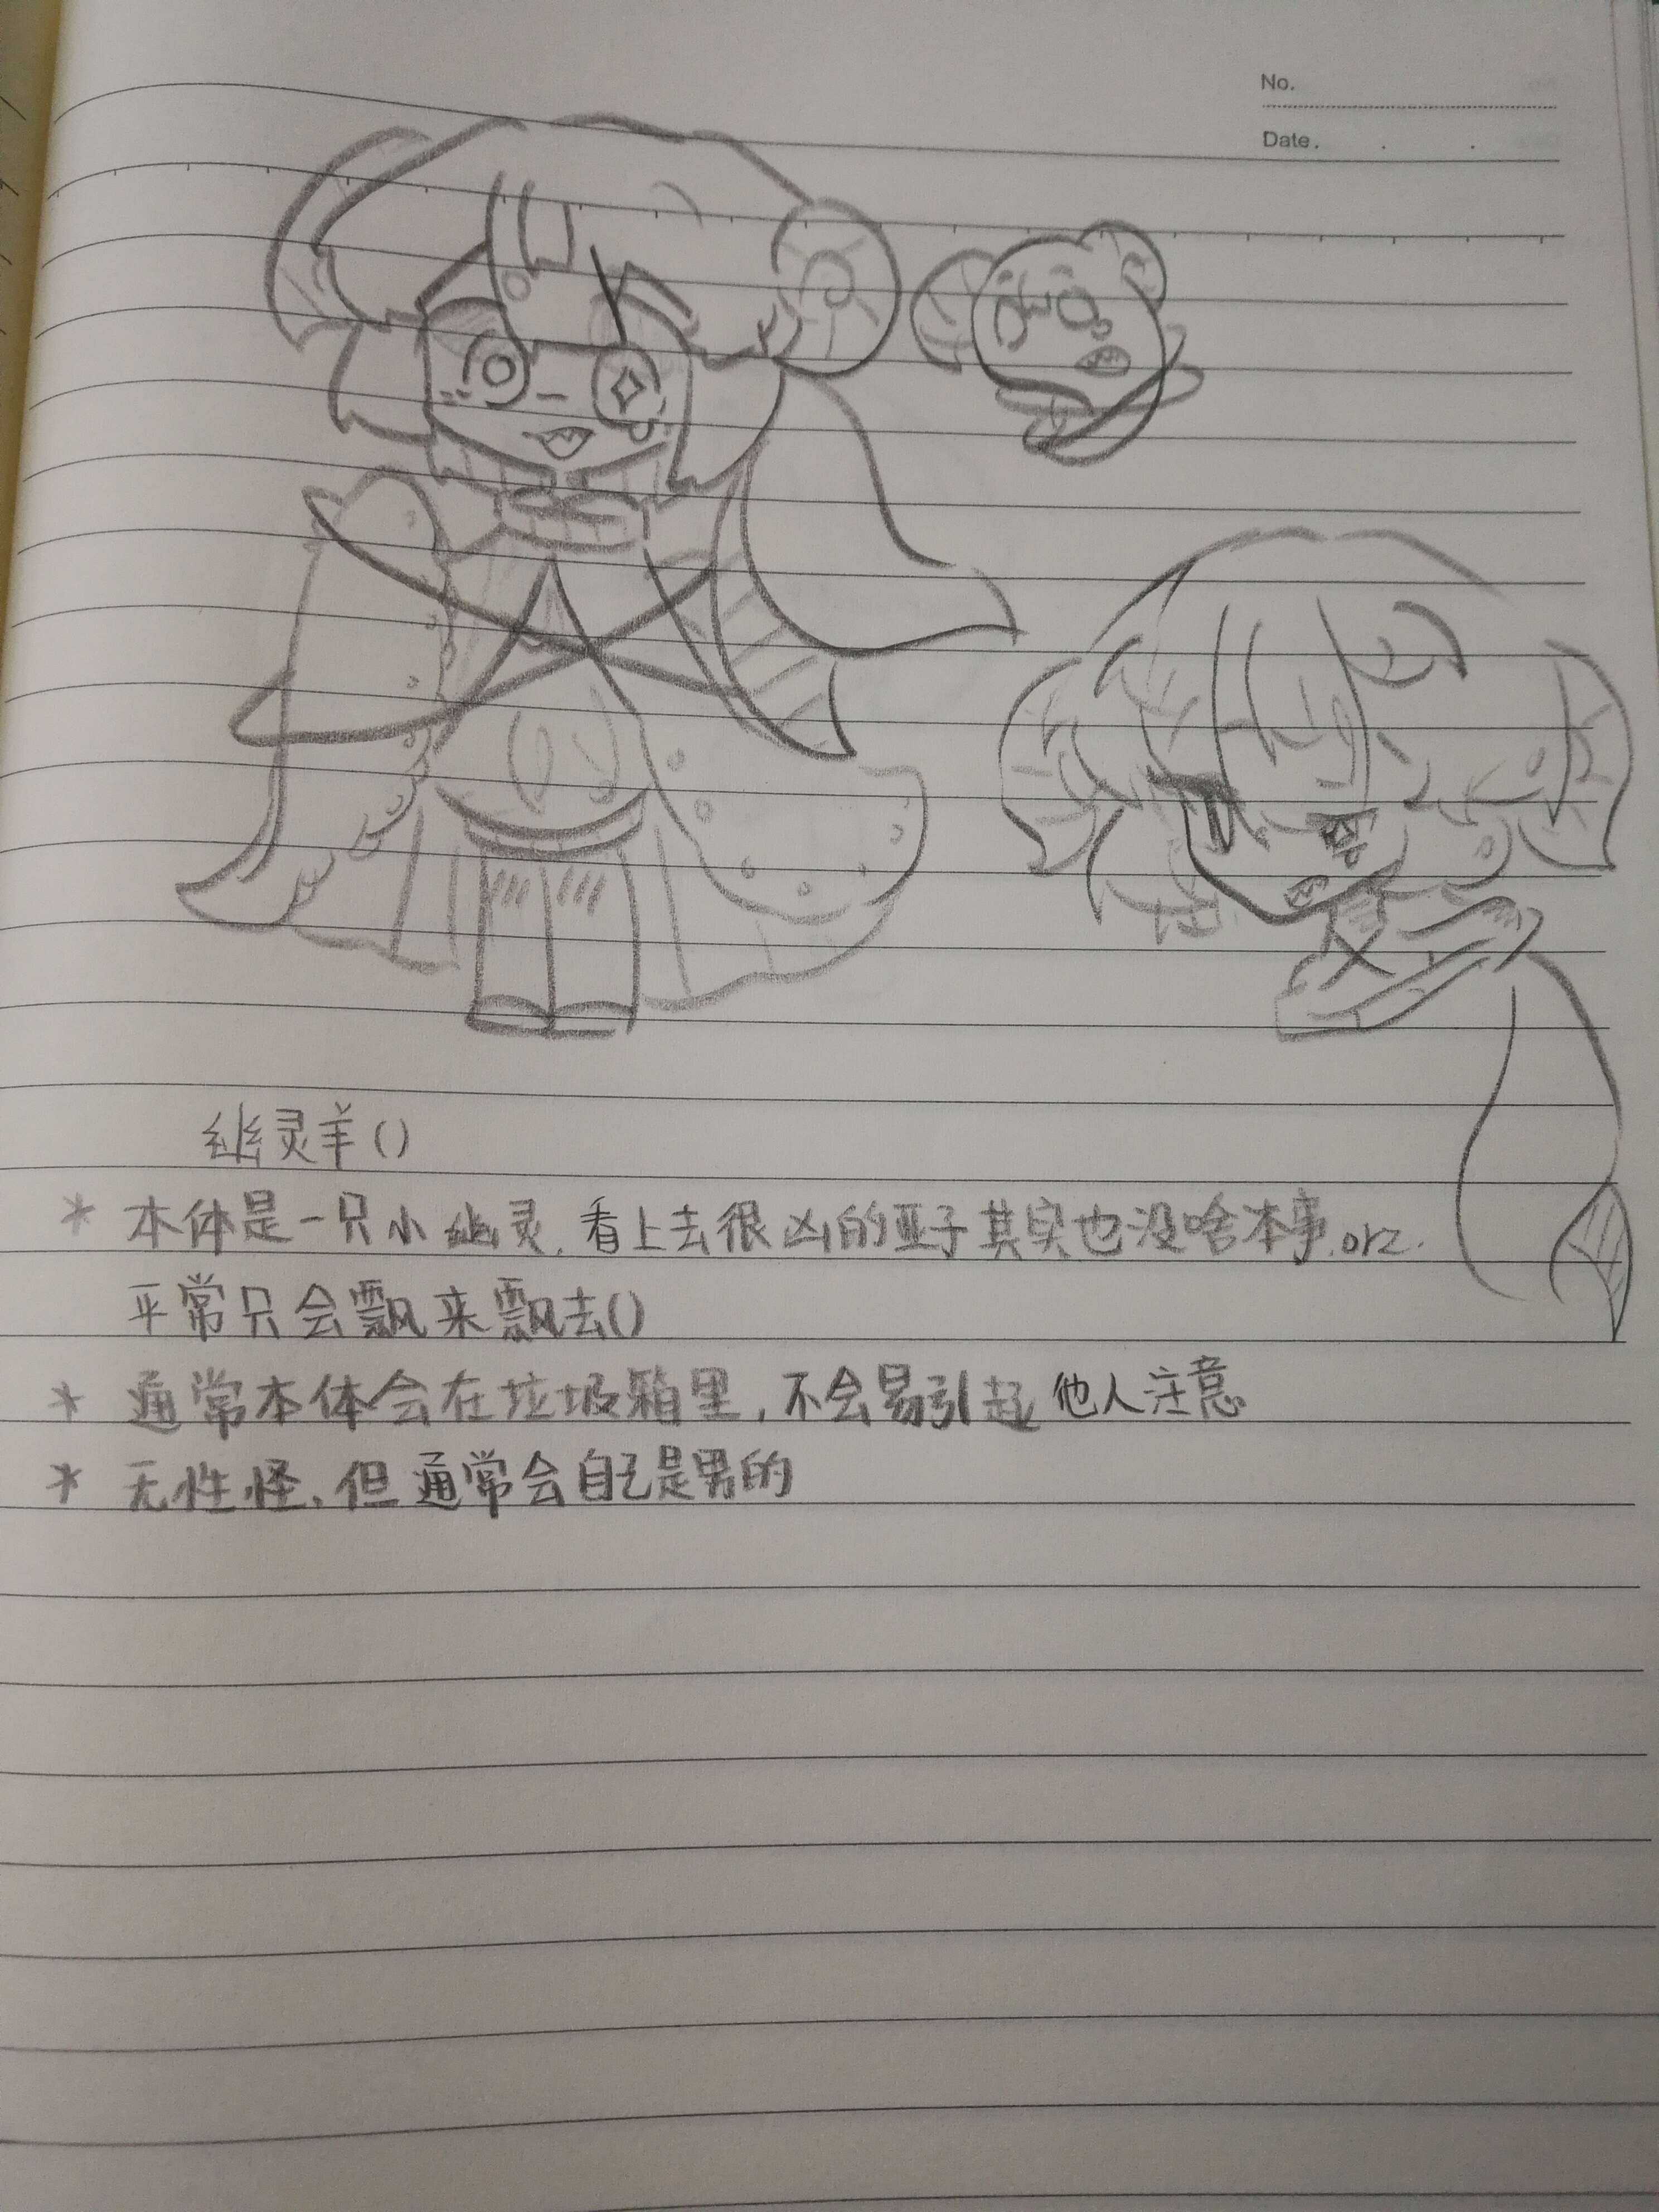 No.
Date.
幽灵羊()
* 本体是一只小幽灵,看上去很凶的亚子其实也没啥本事.orz.
平常只会飘来飘去()
* 通常本体会在垃圾箱里,不会易引起他人注意
* 无性怪,但通常会自己是男的